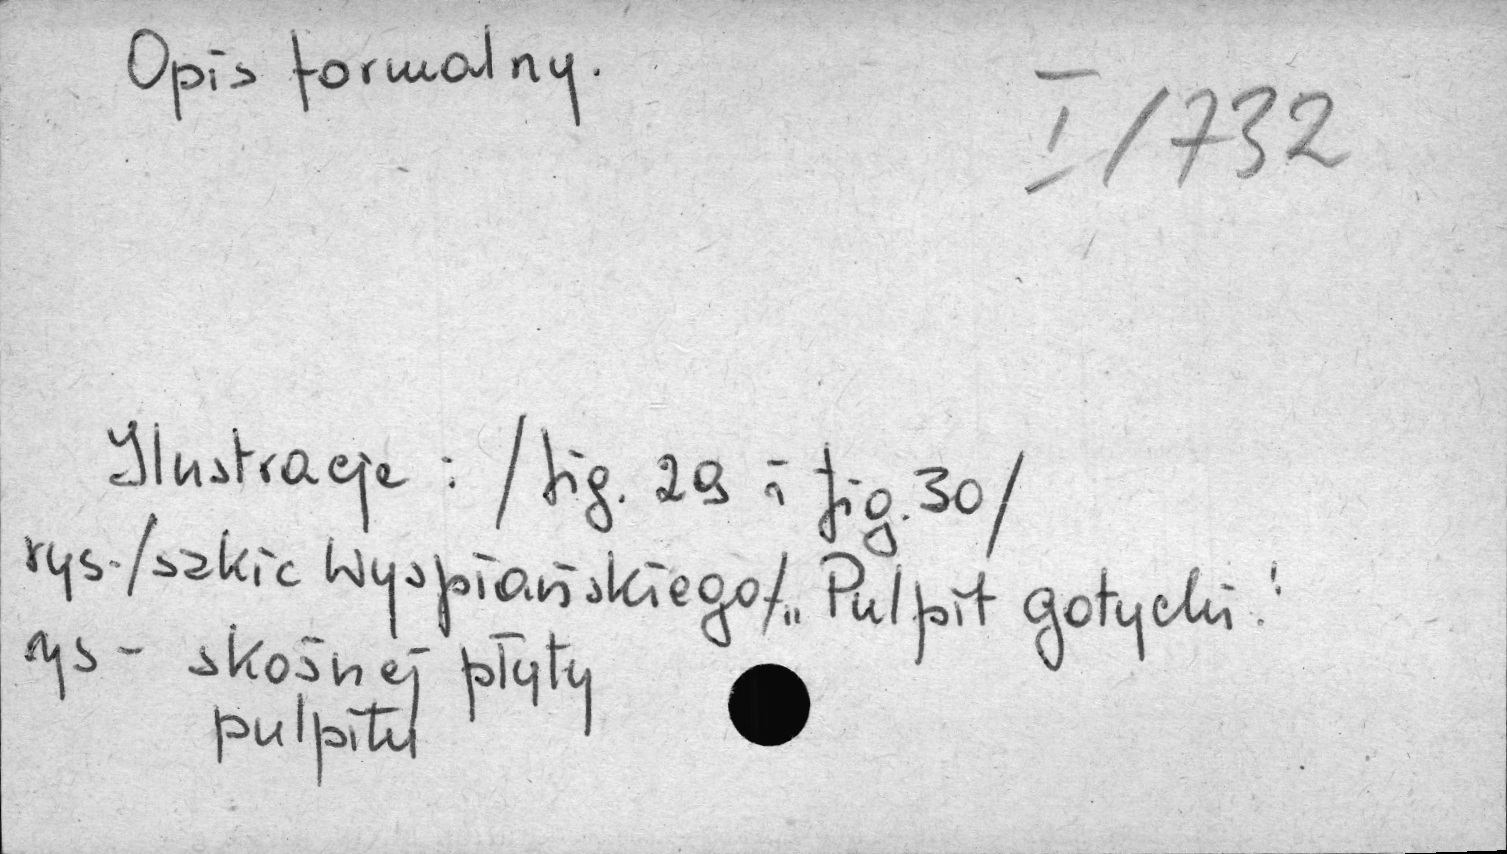 Opis formalny.
I/732
Ilustracje : /fig. 29 i fig. 30/
rys./szkic Wyspiańskiego/ „Pulpit gotycki."
rys - skośnej płyty
pulpitu